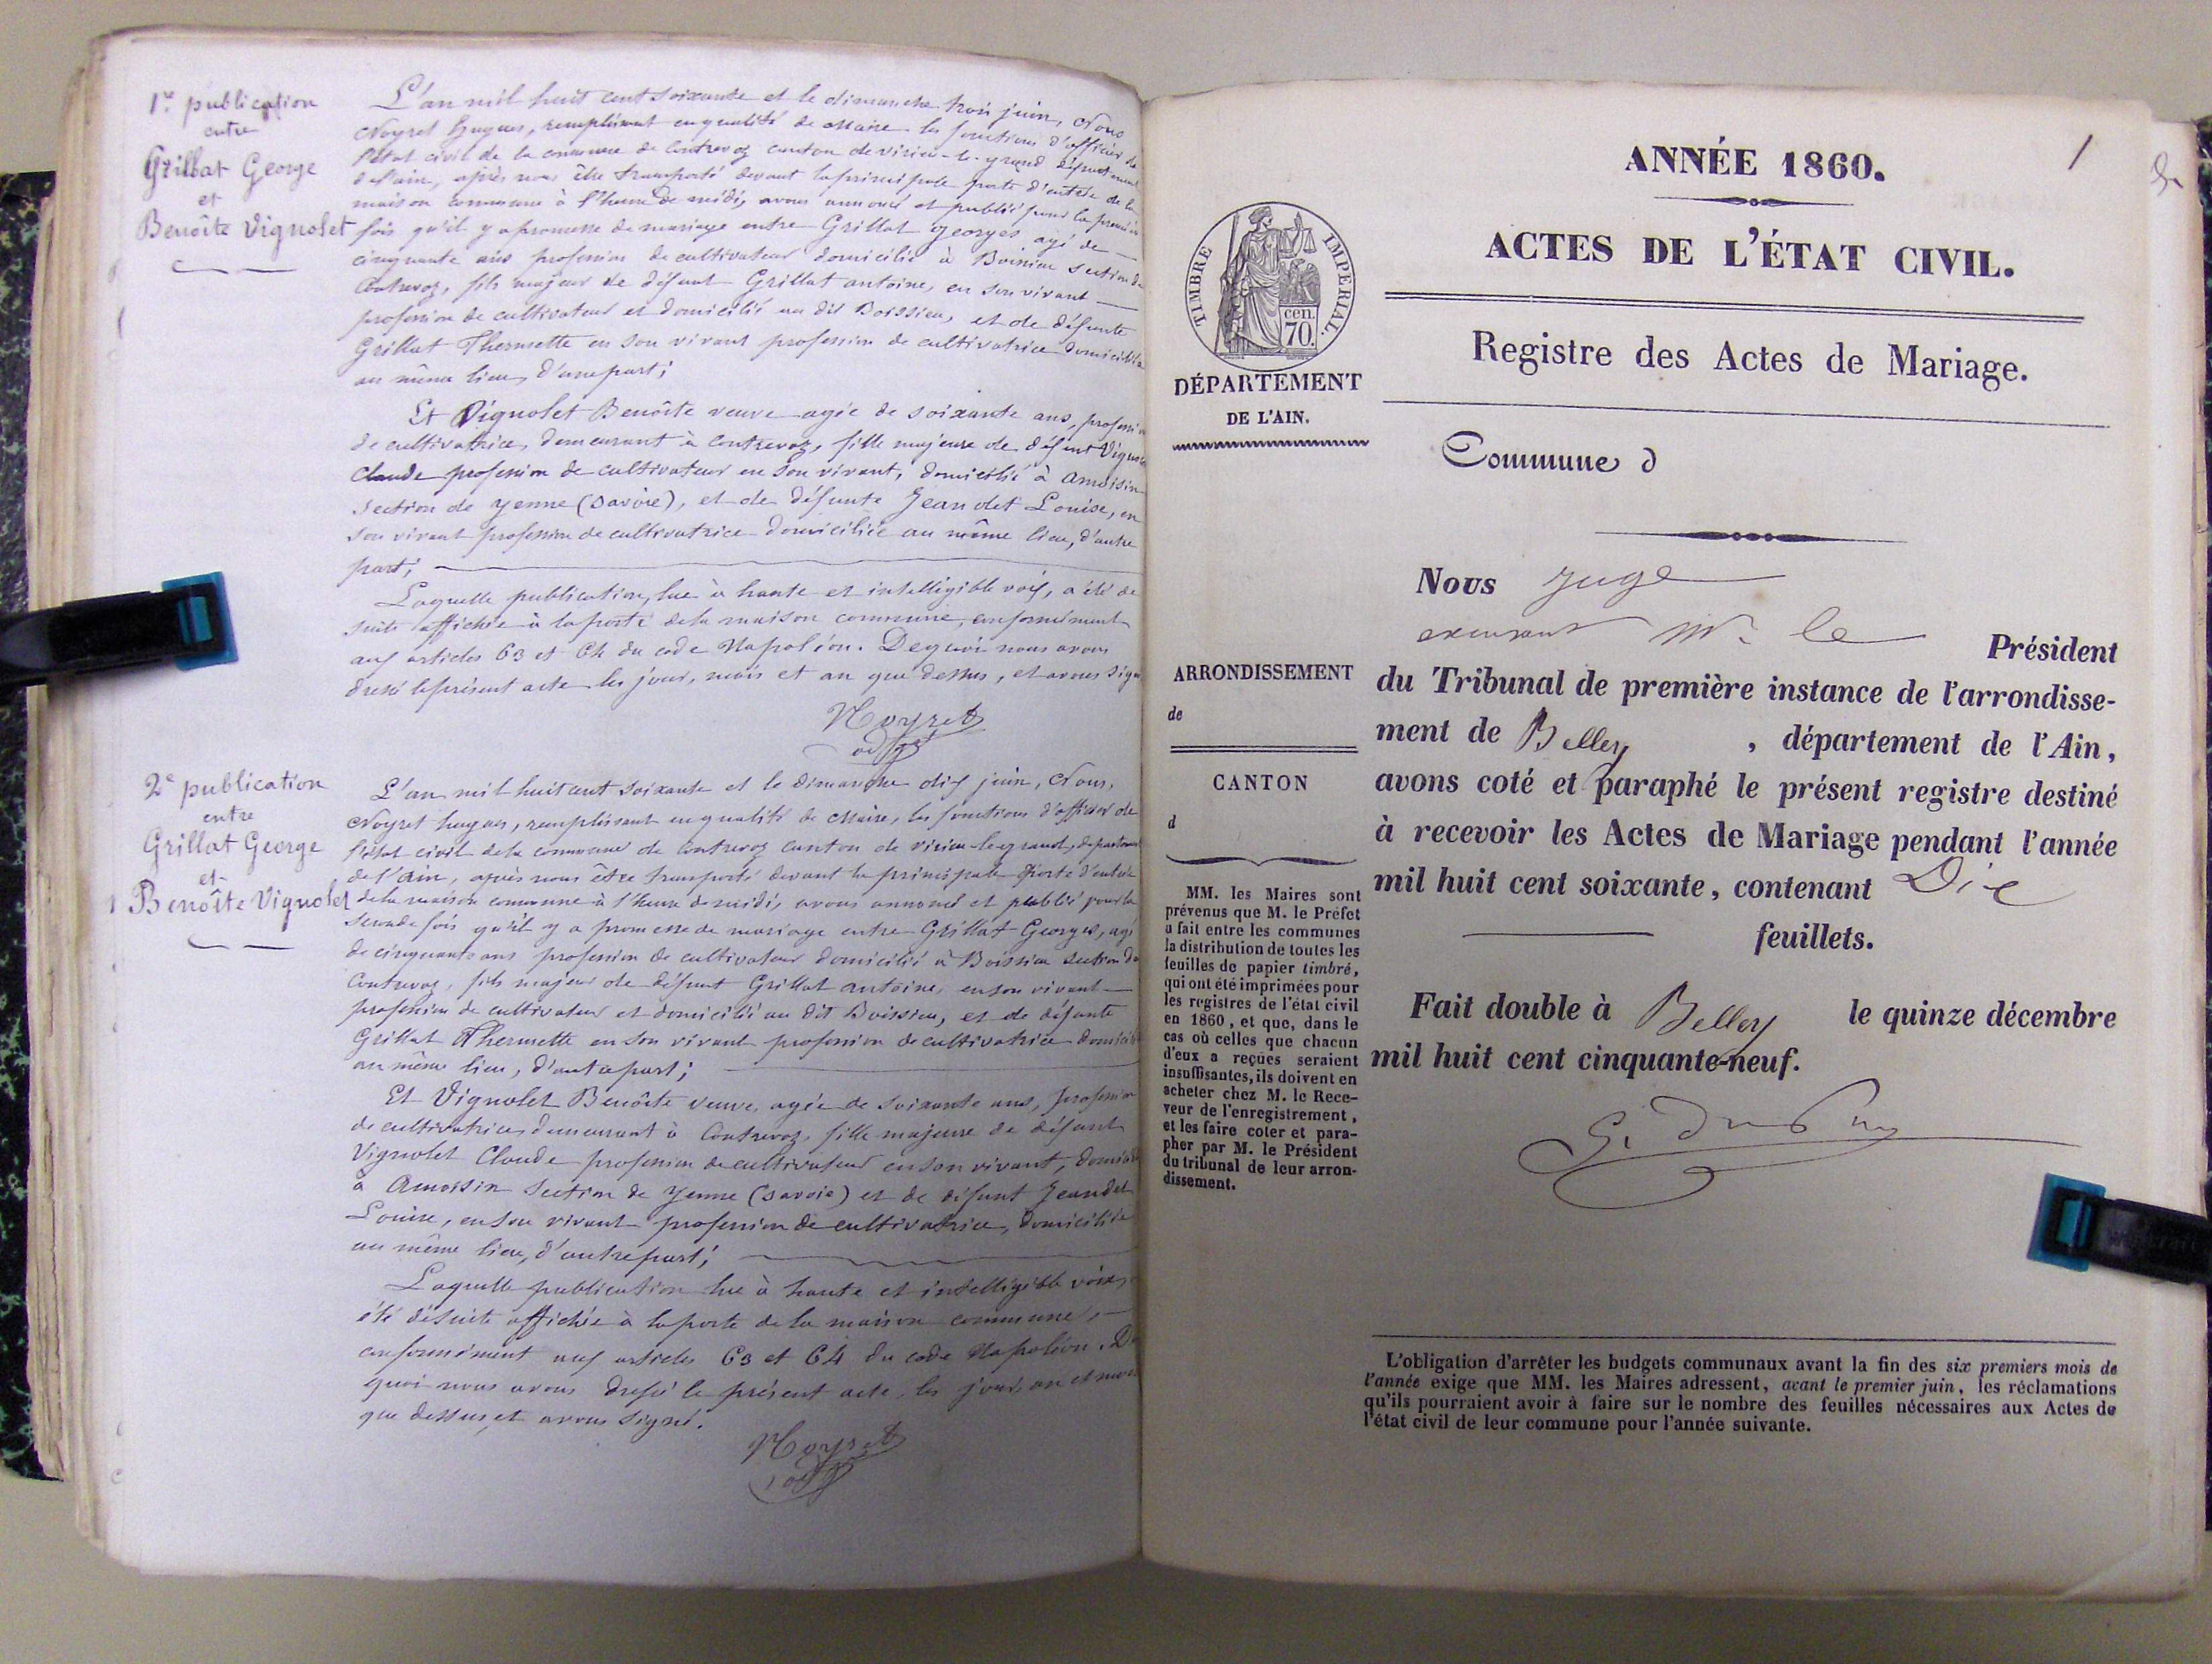 1re publication
entre
Grillat George
et
Benoîte Vignolet
L'an mil huit cent soixante et le dimanche trois juin, Nous
Noyret hugues, remplissant en qualité de Maire les fonctions d'officier de
l'état civil de la commune de Contrevoz canton de virieu-le-grand département
de l'ain, après nous être transporté devant la principale porte d'entrée de la
maison commune à l'heure de midi, avons annoncé et publié pour la première
fois qu'il y a promesse de mariage entre Grillat Georges agé de
cinquante ans profession de cultivateur domicilié à Boissieu section de
Contrevoz, fils majeur de défunt Grillat antoine, en son vivant
profession de cultivateur et domicilié au dit Boissieu, et de défunte
Grillat Thermette en son vivant profession de cultivatrice domiciliée
au même lieu, d'une part;
Et Vignolet Benoîte veuve agée de soixante ans, profession
de cultivatrice, demeurant à Contrevoz, fille majeure de défunt Vignolet
Claude profession de cultivateur en son vivant, domicilié à Amoisin
section de yenne (Savoie), et de défunte Jeandet Louise, en
son vivant profession de cultivatrice domiciliée au même lieu, d'autre
part;
Laquelle publication, lue à haute et intelligible voix, a été de
suite affichée à la porte de la maison commune, conformément
aux articles 63 et 64 du code Napoléon. De quoi nous avons
dressé le présent acte les jour, mois et an que dessus, et avons signé
Noyret
adjt
2e publication
entre
Grillat George
et
Benoîte Vignolet
L'an mil huit cent soixante et le dimanche dix juin, Nous,
Noyret hugues, remplissant en qualité de Maire, les fonctions d'officier de
l'état civil de la commune de Contrevoz canton de virieu-le-grand, département
de l'ain, après nous être transporté devant la principale porte d'entrée
de la maison commune à l'heure de midi, avons annoncé et publié pour la
seconde fois qu'il y a promesse de mariage entre Grillat Georges, agé
de cinquante ans profession de cultivateur domicilié à Boissieu section de
Contrevoz, fils majeur de défunt Grillat antoine, en son vivant
profession de cultivateur et domicilié au dit Boissieu, et de défunte
Grillat Thermette en son vivant profession de cultivatrice domiciliée
au même lieu, d'autre part;
Et Vignolet Benoîte veuve, agée de soixante ans, profession
de cultivatrice, demeurant à Contrevoz, fille majeure de défunt
Vignolet Claude profession de cultivateur en son vivant, domicilié
à Amoisin section de yenne (savoie) et de défunt Jeandet
Louise, en son vivant profession de cultivatrice, domiciliée
au même lieu, d'autre part;
Laquelle publication lue à haute et intelligible voix,
été de suite affichée à la porte de la maison commune,
conformément aux articles 63 et 64 du code Napoléon. De
quoi nous avons dressé le présent acte, les jour, an et mois
que dessus, et avons signé.
Noyret
adjt
1
ANNÉE 1860.
ACTES DE L'ÉTAT CIVIL.
Registre des Actes de Mariage.
Commune d
TIMBRE IMPERIAL.
cen.
70.
DÉPARTEMENT
DE L'AIN.
ARRONDISSEMENT
de
CANTON
d
MM. les Maires sont
prévenus que M. le Préfet
a fait entre les communes
la distribution de toutes les
feuilles de papier timbré,
qui ont été imprimées pour
les registres de l'état civil
en 1860, et que, dans le
cas où celles que chacun
d'eux a reçues seraient
insuffisantes, ils doivent en
acheter chez M. le Rece-
veur de l'enregistrement,
et les faire coter et para-
pher par M. le Président
du tribunal de leur arron-
dissement.
Nous juge
excusant Mr. le Président
du Tribunal de première instance de l'arrondisse-
ment de Belley, département de l'Ain,
avons coté et paraphé le présent registre destiné
à recevoir les Actes de Mariage pendant l'année
mil huit cent soixante, contenant Dix
feuillets.
Fait double à Belley le quinze décembre
mil huit cent cinquante-neuf.
L'obligation d'arrêter les budgets communaux avant la fin des six premiers mois de
l'année exige que MM. les Maires adressent, avant le premier juin, les réclamations
qu'ils pourraient avoir à faire sur le nombre des feuilles nécessaires aux Actes de
l'état civil de leur commune pour l'année suivante.